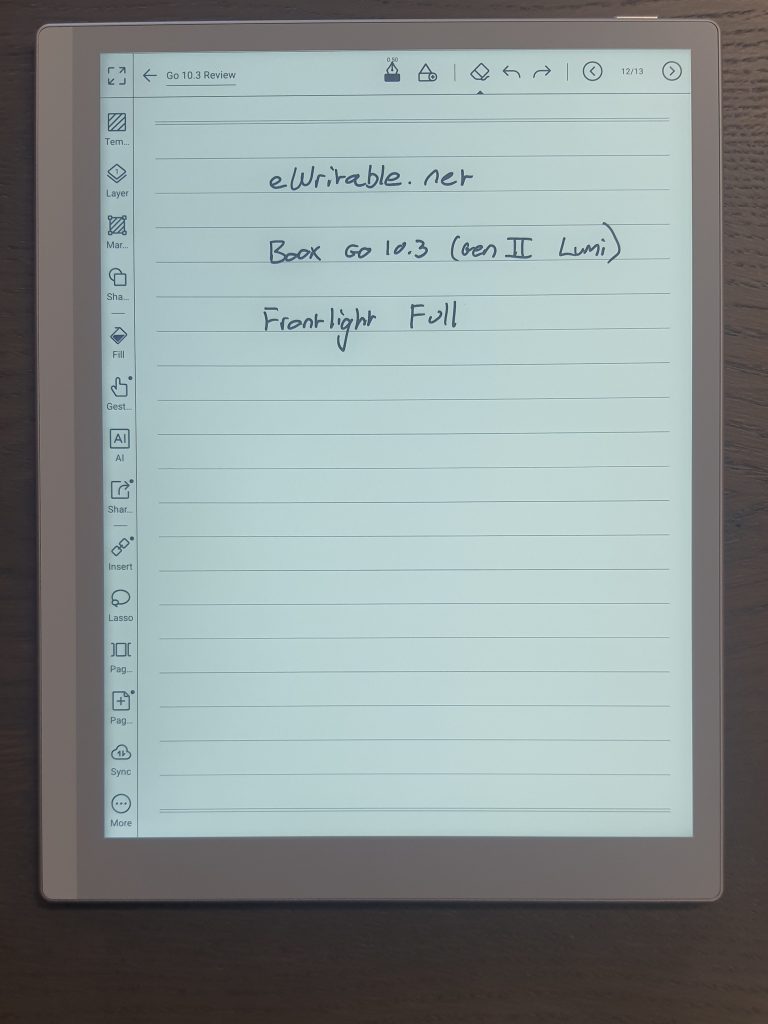 0.50
Go 10.3 Review
12/13
Tem...
Layer
Mar...
Sha...
Fill
Gest...
AI
AI
Shar...
Insert
Lasso
Pag...
Pag...
Sync
More
eWritable.net
Boox Go 10.3 (Gen II Lumi)
Frontlight Full